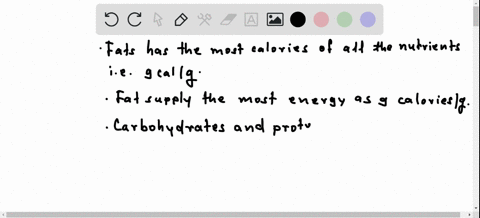 · Fats has the most calories of all the nutrients
i.e. 9 cal/g.
· Fat supply the most energy as 9 calories/g.
· Carbohydrates and prot